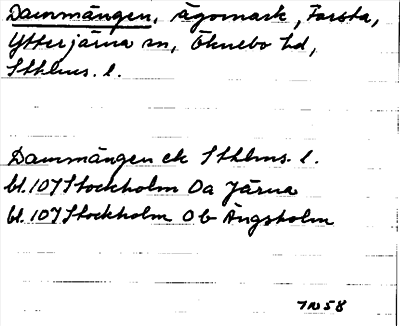 Dammängen, ägomark, Farsta,
Ytterjärna sn, Öknebo hd,
Sthlms. l.
Dammängen ek Sthlms. l.
bl. 107 Stockholm Oa Järna
bl. 107 Stockholm Ob Ängsholm
TN 58